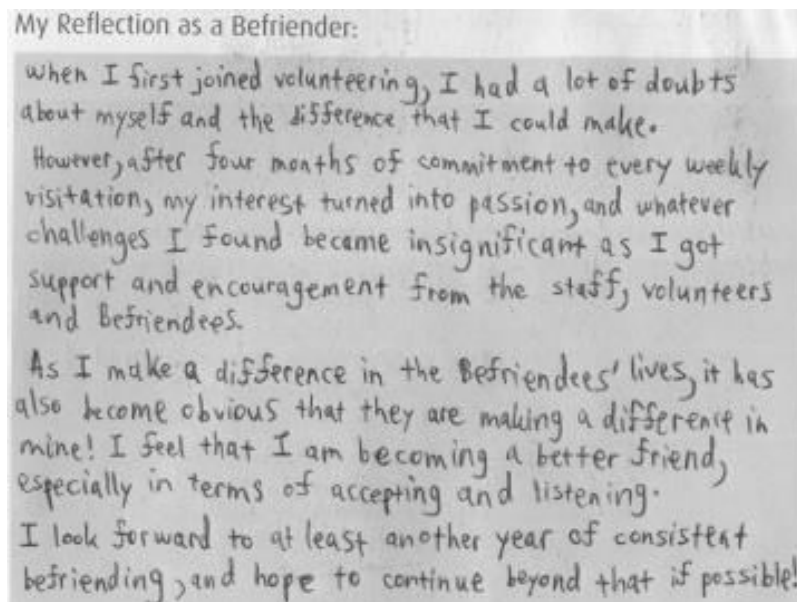 My Reflection as a Befriender:
When I first joined volunteering, I had a lot of doubts
about myself and the difference that I could make.
However, after four months of commitment to every weekly
visitation, my interest turned into passion, and whatever
challenges I found became insignificant as I got
support and encouragement from the staff, volunteers
and Befriendees.
As I make a difference in the Befriendees' lives, it has
also become obvious that they are making a difference in
mine! I feel that I am becoming a better friend,
especially in terms of accepting and listening.
I look forward to at least another year of consistent
befriending, and hope to continue beyond that if possible!